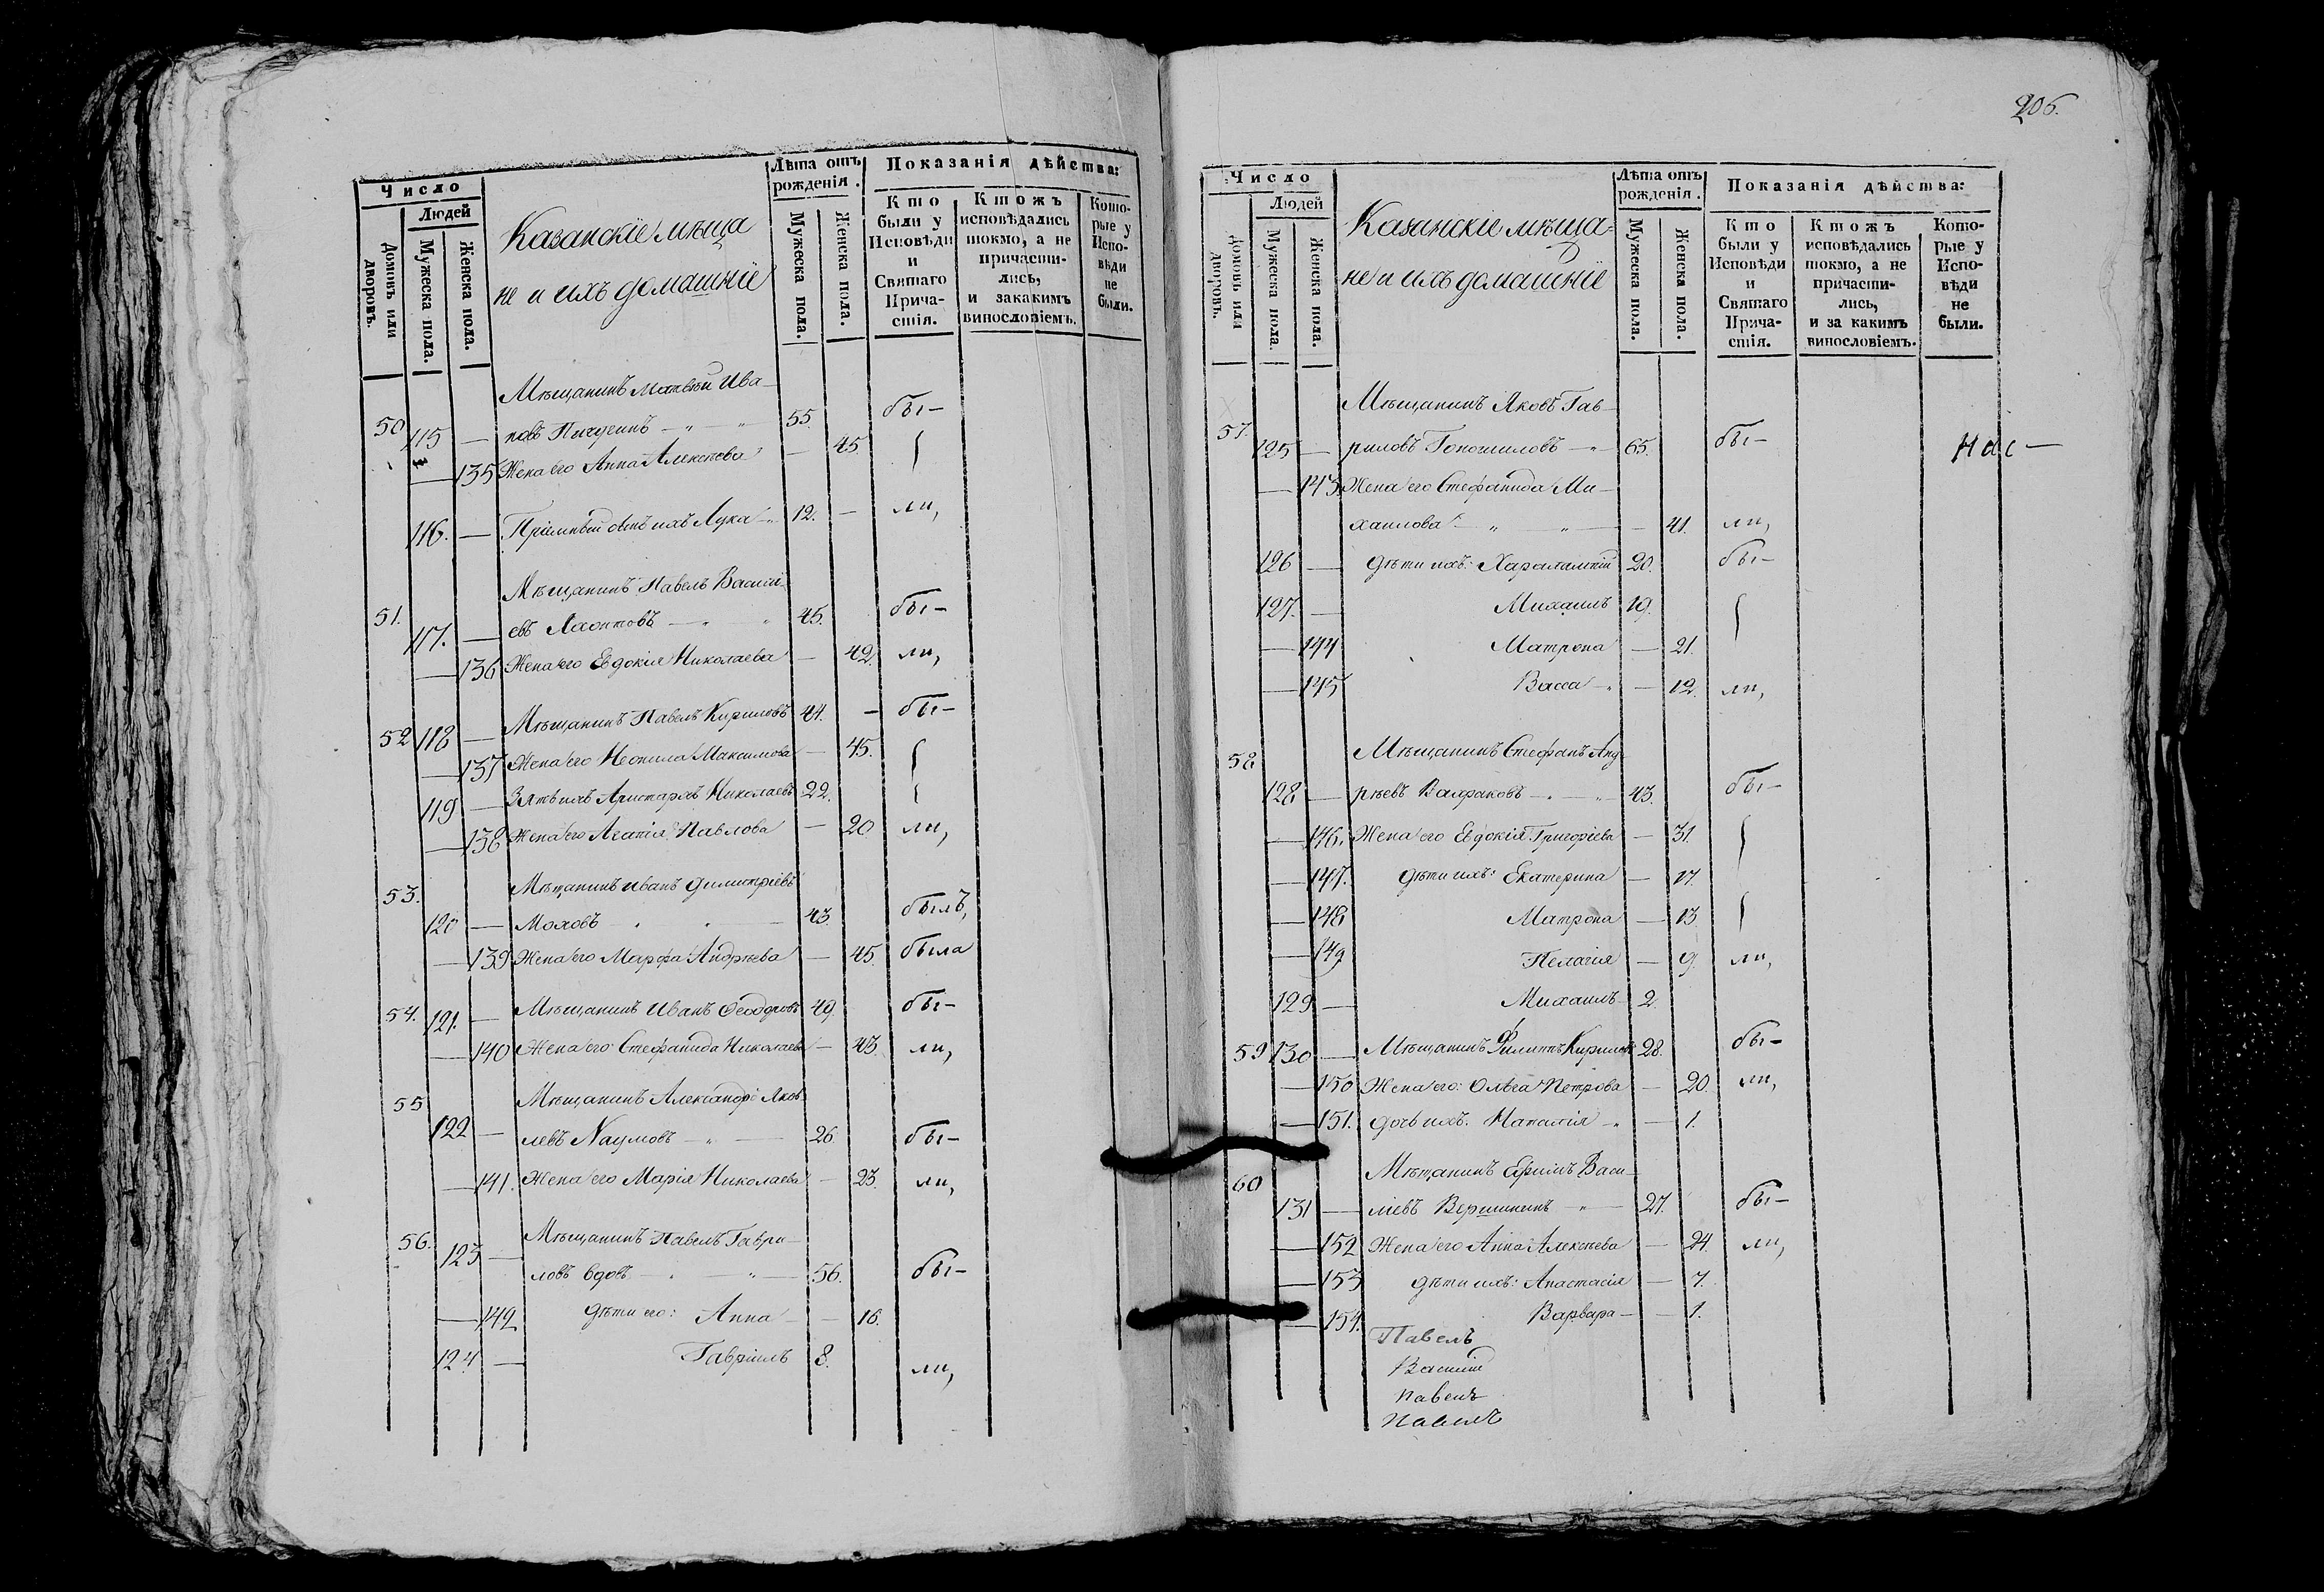 Число
Людей
Домовъ или дворовъ.
Мужеска пола.
Женска пола.
Казанскіе мѣща
не и ихъ домашніе
Лѣта отъ рожденія.
Мужеска пола.
Женска пола.
Показанія дѣйства:
Кто были у Исповѣди и Святаго Причастія.
Ктожъ исповѣдались токмо, а не причастились, и закакимъ винословіемъ.
Которые у Исповѣди не были.
Мѣщанинъ Матвей Ива-
50 115 — новъ Пичугинъ — 55. бы-
— 135 Жена его Анна Алексѣева — 45
116. — Пріемный сынъ ихъ Лука 12. — ли,
Мѣщанинъ Павелъ Василі-
51. 117. — евъ 45. бы-
— 136 Жена его Евдокія Николаева — 42. ли,
52 118 — Мѣщанинъ Павелъ Кириловъ 44. — бы-
— 137 Жена его Неонила Максимова — 45.
119 — Зять ихъ Аристархъ Николаевъ 22.
— 138 Жена его Агапія Павлова — 20 ли,
53. Мѣщанинъ Иванъ Димитріевъ
120 — Моховъ — 43. былъ,
— 139 Жена его Марфа Андреева — 45. была
54. 121. — Мѣщанинъ Иванъ Ѳеодоровъ 49. бы-
— 140 Жена его Стефанида Николаева — 43. ли,
55 Мѣщанинъ Александръ Яков-
122 — левъ Наумовъ — 26. бы-
— 141. Жена его Марія Николаева — 23. ли,
56. 123 — Мѣщанинъ Павелъ Гаври-
ловъ вдовъ — 56. бы-
— 142 дѣти его: Анна — 16.
124 — Гавріилъ 8. ли,
206.
Число
Людей
Домовъ или дворовъ.
Мужеска пола.
Женска пола.
Казанскіе мѣща-
не и ихъ домашніе
Лѣта отъ рожденія.
Мужеска пола.
Женска пола.
Показанія дѣйства:
Кто были у Исповѣди и Святаго Причастія.
Ктожъ исповѣдались токмо, а не причастились, и за какимъ винословіемъ.
Которые у Исповѣди не были.
Мѣщанинъ Яковъ Гав-
57. 125 — риловъ — 65. бы-
— 143. Жена его Стефанида Ми-
хаилова — 41. ли,
126 — дѣти ихъ: Харалампій 20. бы-
127. — Михаилъ 19.
— 144 Матрона — 21.
— 145 Васса — 12. ли,
58 Мѣщанинъ Стефанъ Анд-
128 — рѣевъ — 43. бы-
— 146. Жена его Евдокія Григоріева — 31.
— 147. дѣти ихъ: Екатерина — 17.
— 148 Матрона — 13.
— 149 Пелагія — 9. ли,
129 — Михаилъ 2.
59 130 — Мѣщанинъ Филиппъ Кириловъ 28. бы-
— 150 Жена его: Ольга Петрова — 20. ли,
— 151. дочь ихъ: Наталія — 1.
60 Мѣщанинъ Ефимъ Васи-
131 — ліевъ Вершининъ — 27. бы-
— 152 Жена его Анна Алексѣева — 24. ли,
— 153 дѣти ихъ: Анастасія — 7.
— 154. Варвара — 1.
Павелъ
Василій
Павелъ
Павелъ